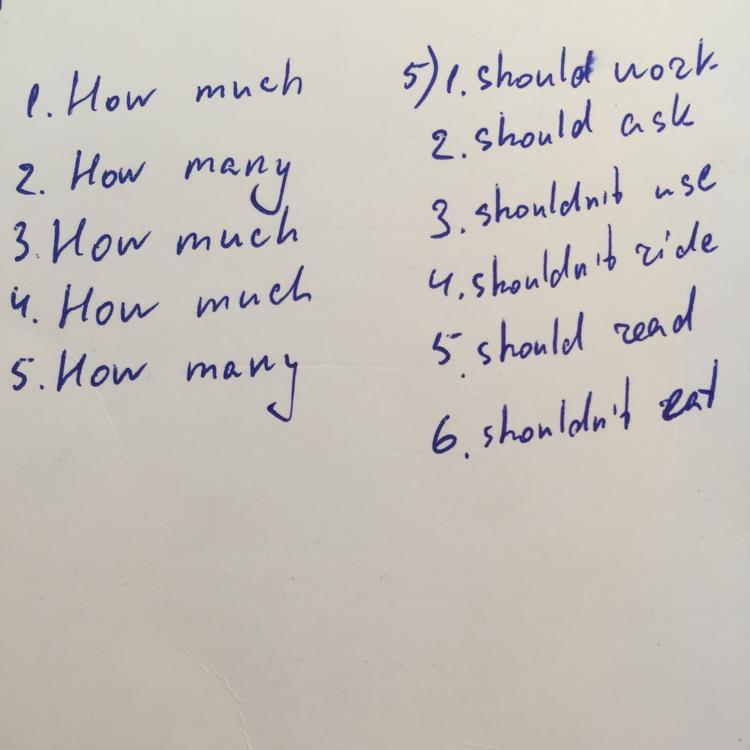 1. How much
2. How many
3. How much
4. How much
5. How many
5) 1. should work
2. should ask
3. shouldn't use
4. shouldn't ride
5. should read
6. shouldn't eat